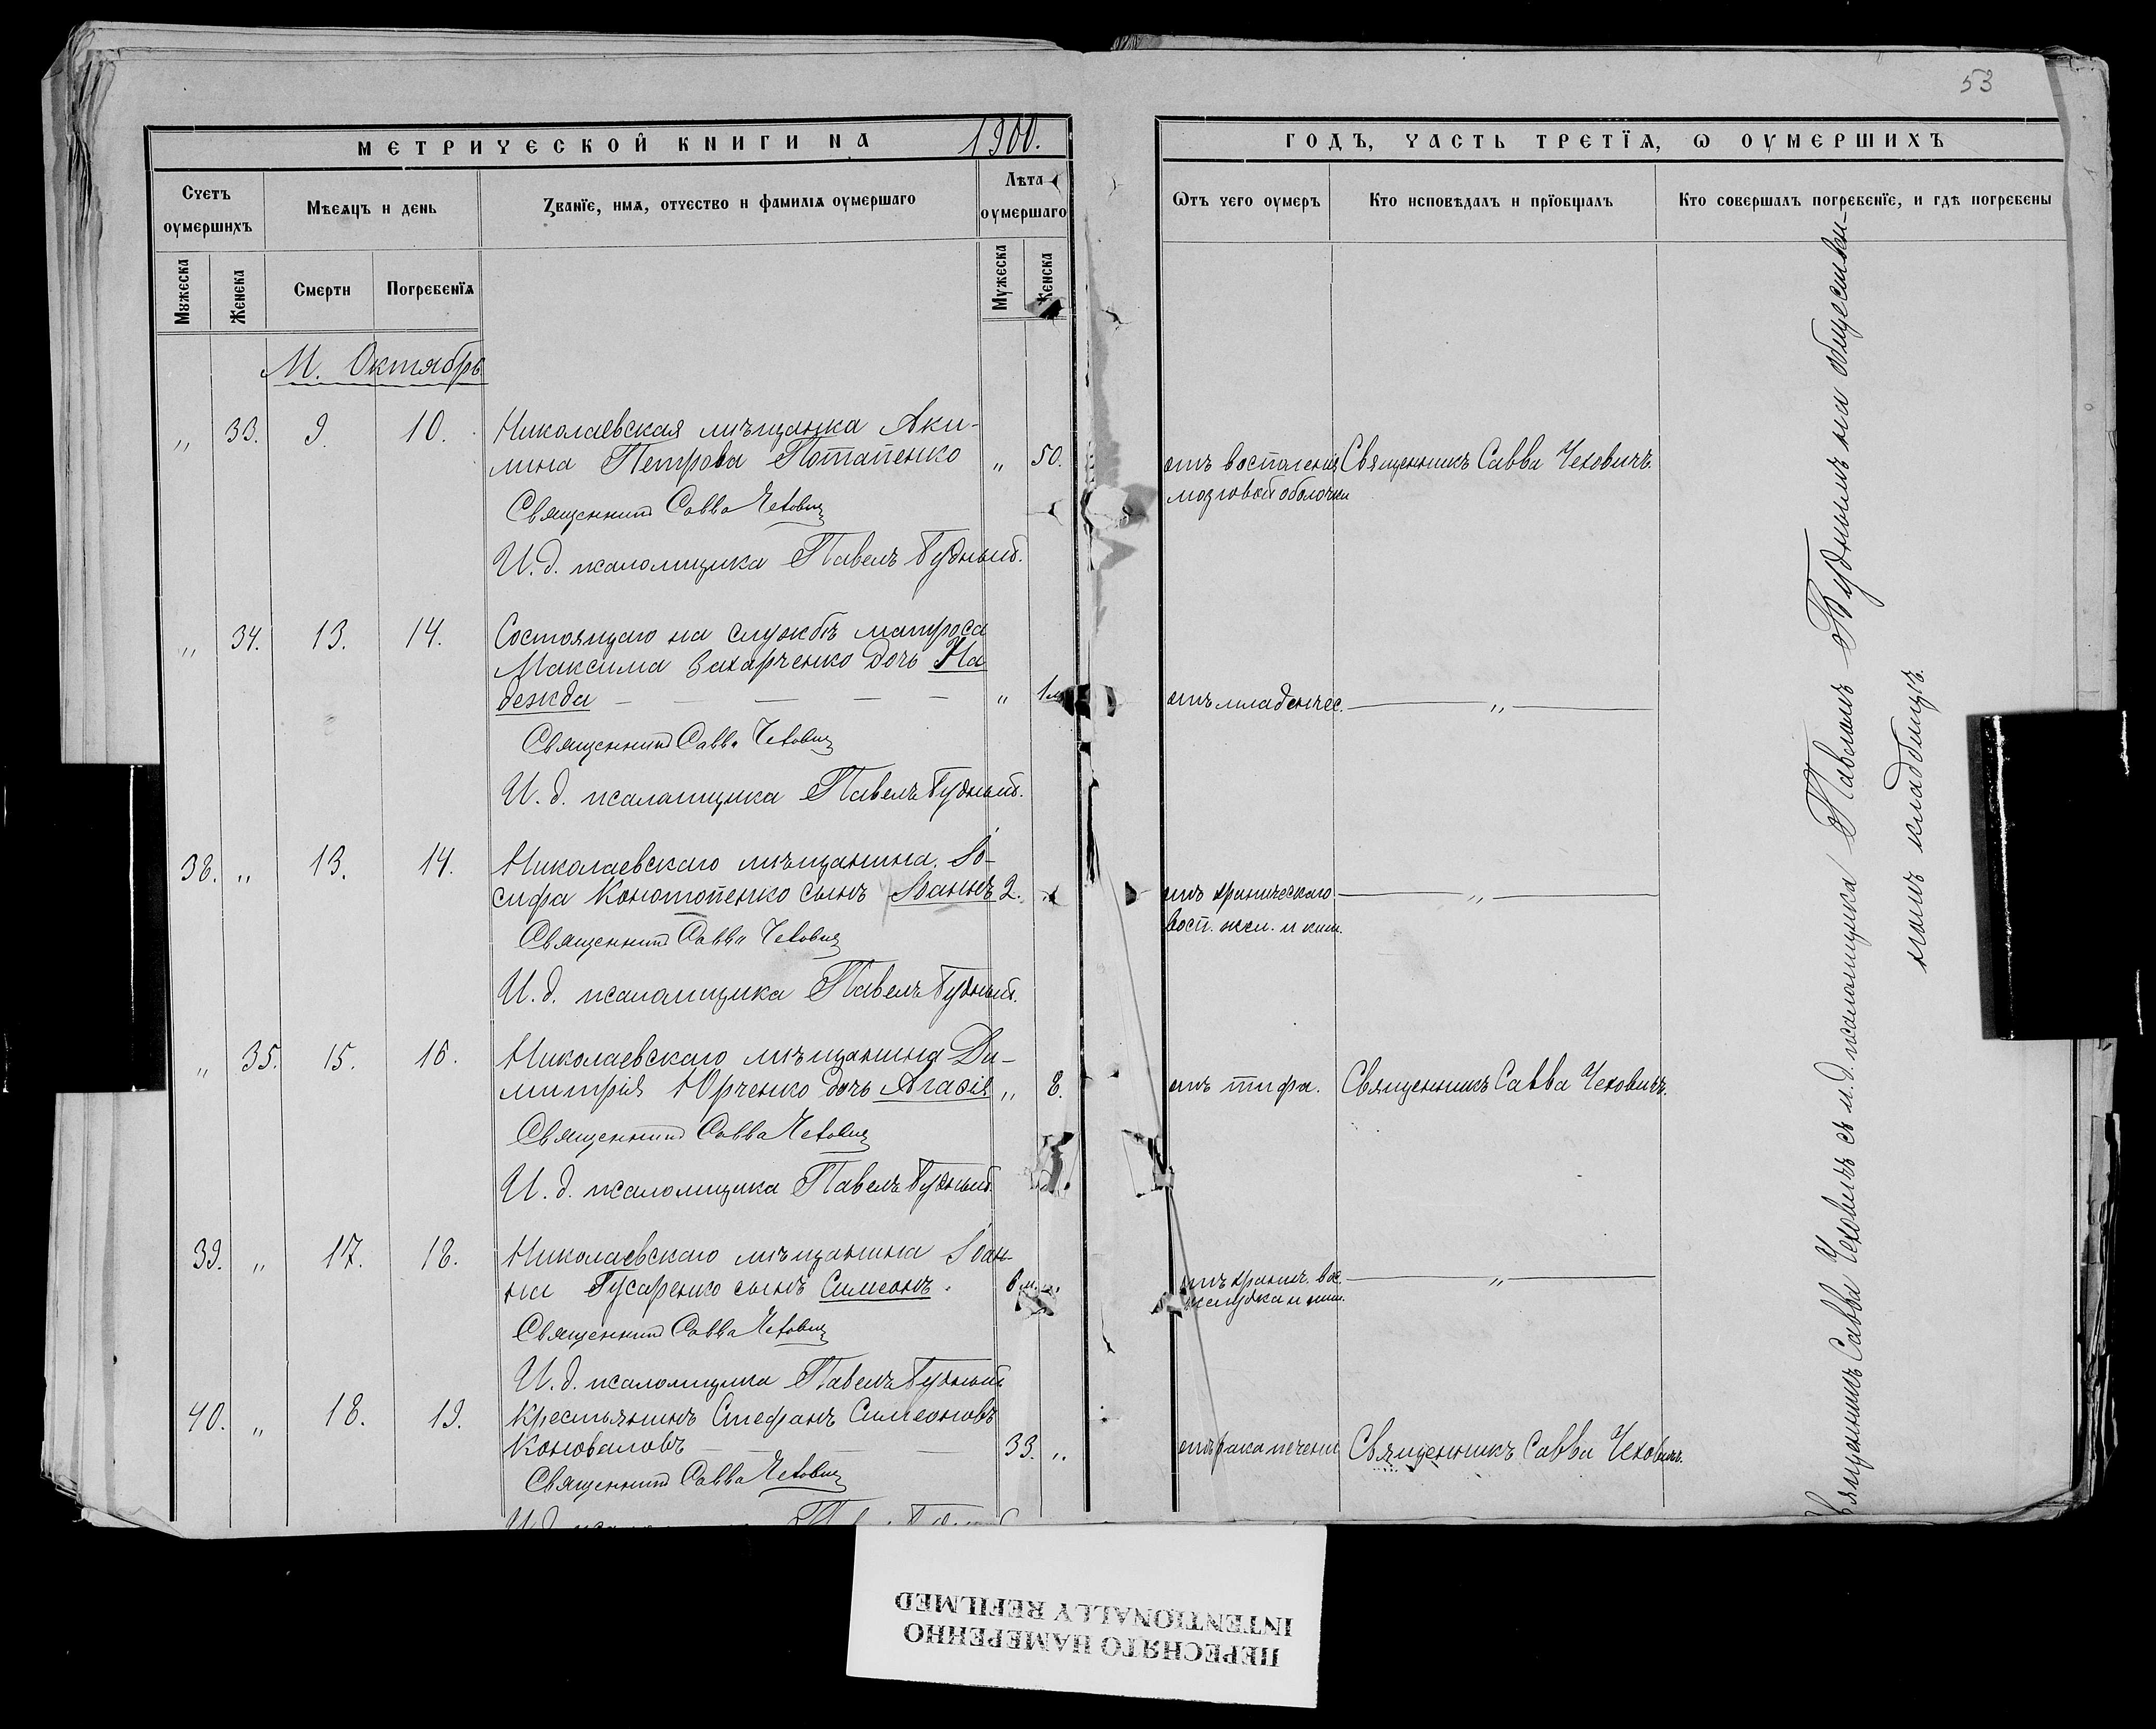 53
МЕТРИЧЕСКОЙ КНИГИ НА 1900.
ГОДЪ, ЧАСТЬ ТРЕТІѦ, Ѡ ОУМЕРШИХЪ
Счетъ оумершихъ
Мѣсяцъ и день
Званїе, имѧ, отчество и фамилїѧ оумершаго
Лѣта оумершаго
Ѿтъ чего оумеръ
Кто исповѣдалъ и прїобщалъ
Кто совершалъ погребенїе, и гдѣ погребены
Мꙋжеска
Женска
Смерти
Погребенїѧ
Мужеска
Женска
М. Октябрь
„ 33. 9. 10. Николаевская мѣщанка Аки-
лина Петрова Потапенко „ 50. отъ воспаленія Священникъ Савва Чеховичъ.
мозговой оболочки
Священникъ Савва Чеховичъ
И. д. псаломщика Павелъ Будный.
„ 34. 13. 14. Состоящаго на службѣ матроса
Максима Захарченко дочь На
дежда — — — — „ 1 м. отъ младенчес. — „ —
Священникъ Савва Чеховичъ
И. д. псаломщика Павелъ Будный.
38. „ 13. 14. Николаевскаго мѣщанина Іо-
сифа Конотопенко сынъ Іоаннъ 2. „ отъ хроническаго — „ —
восп. жел. и киш.
Священникъ Савва Чеховичъ
И. д. псаломщика Павелъ Будный.
„ 35. 15. 16. Николаевскаго мѣщанина Ди-
митрія Юрченко дочь Агаѳія „ 8. отъ тифа. Священникъ Савва Чеховичъ.
Священникъ Савва Чеховичъ
И. д. псаломщика Павелъ Будный.
39. „ 17. 18. Николаевскаго мѣщанина Іоан-
на Гусаренко сынъ Симеонъ. 6 м. „ отъ хронич. вос. — „ —
желудка и киш.
Священникъ Савва Чеховичъ
И. д. псаломщика Павелъ Будный
40. „ 18. 19. Крестьянинъ Стефанъ Симеоновъ
Коноваловъ — — — 33. „ отъ рака печени Священникъ Савва Чеховичъ.
Священникъ Савва Чеховичъ
Священникъ Савва Чеховичъ съ и. д. псаломщика Павломъ Буднымъ на обществен-
номъ кладбищѣ.
ПЕРЕСНЯТО НАМЕРЕННО
INTENTIONALLY REFILMED